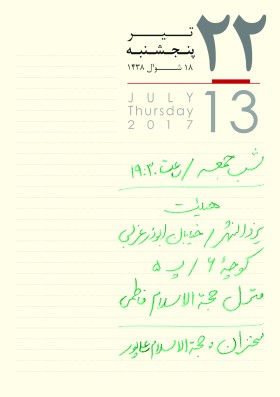 ۲۲
تیر
پنجشنبه
۱۸ شوال ۱۴۳۸
JULY
Thursday
2017
13
شب جمعه / ساعت ۱۹:۳۰
هیئت
یزدانشهر / خیابان ابوذر غربی
کوچهٔ ۶ / پ ۵
منزل حجة الاسلام فاطمی
سخنران: حجة الاسلام